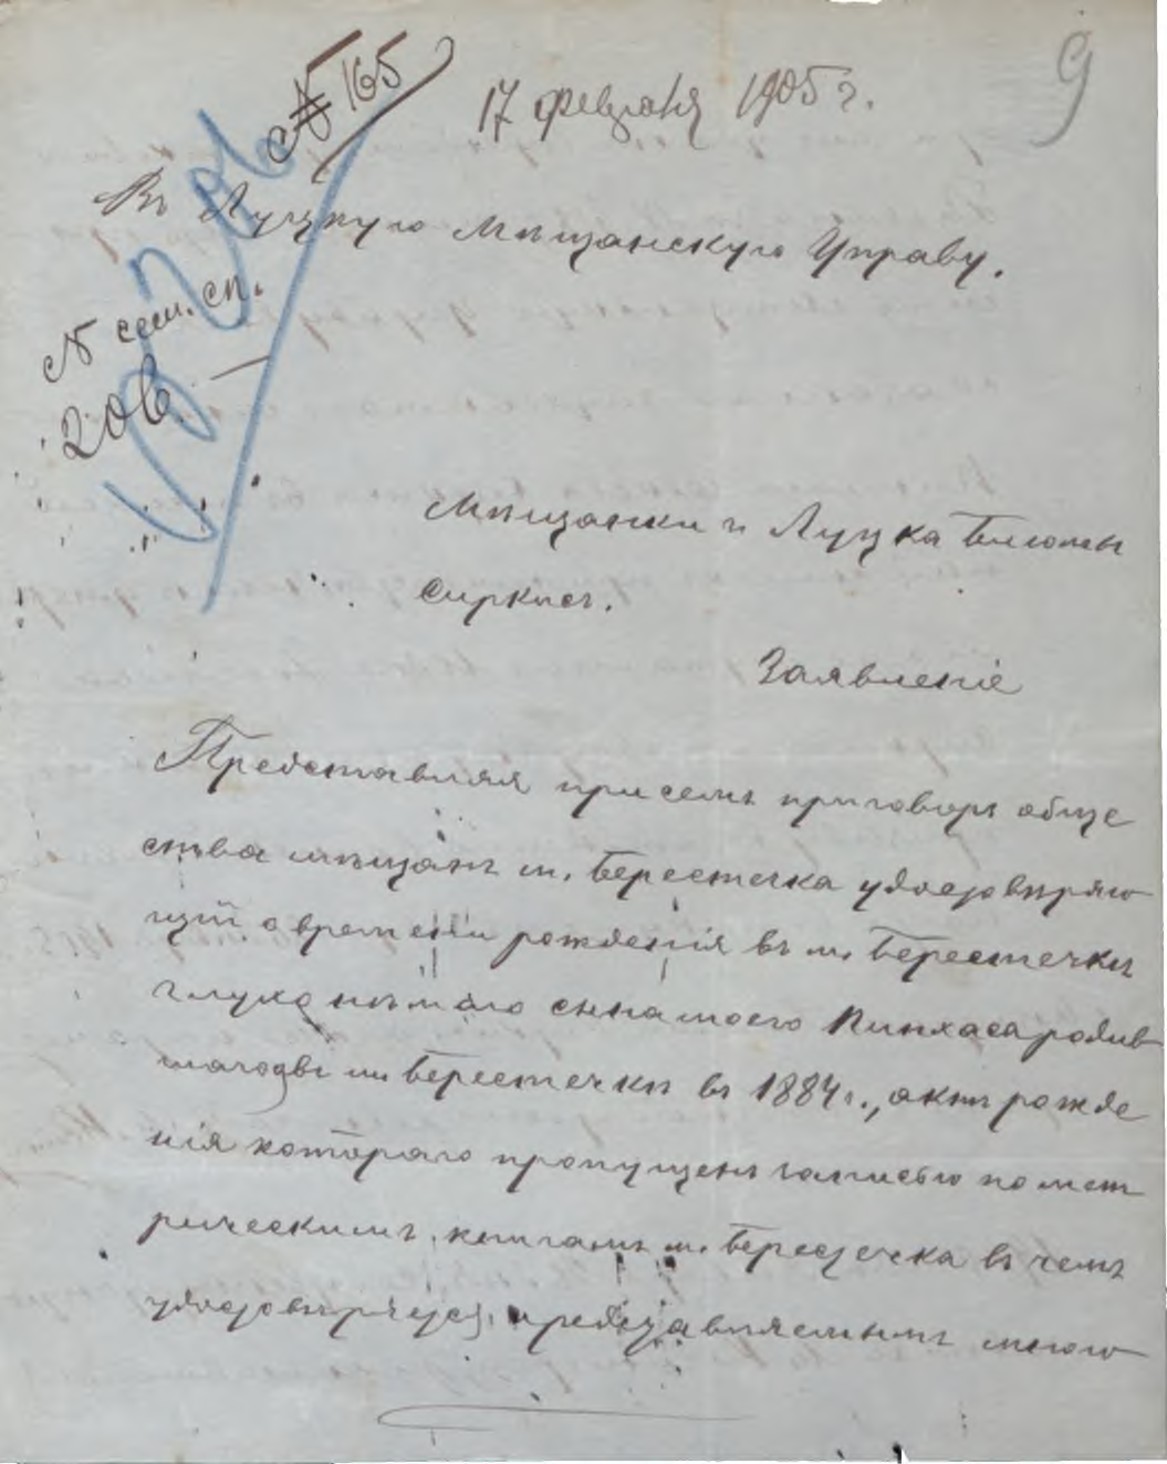 9
№ 165
17 февраля 1905 г.
Въ Луцкую Мѣщанскую Управу.
№ сем. сп.
206.
Мѣщанки г. Луцка
Сиркисъ.
Заявленіе
Представляя при семъ приговоръ обще
ства мѣщанъ м. Берестечка удостовѣряю
щій о времени рожденія въ м. Берестечкѣ
глухонѣмаго сына моего Пинхаса родив
шагося въ м. Берестечкѣ въ 1884 г., актъ рожде
нія котораго пропущенъ записью по мет
рическимъ книгамъ м. Берестечка въ чемъ
удостовѣряется представляемымъ мною